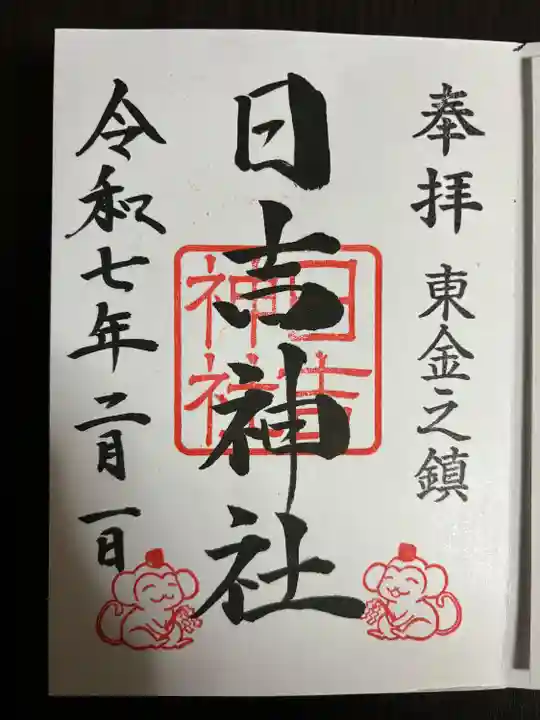 奉拝 東金之鎮
日吉神社
日吉
神社
令和七年二月一日